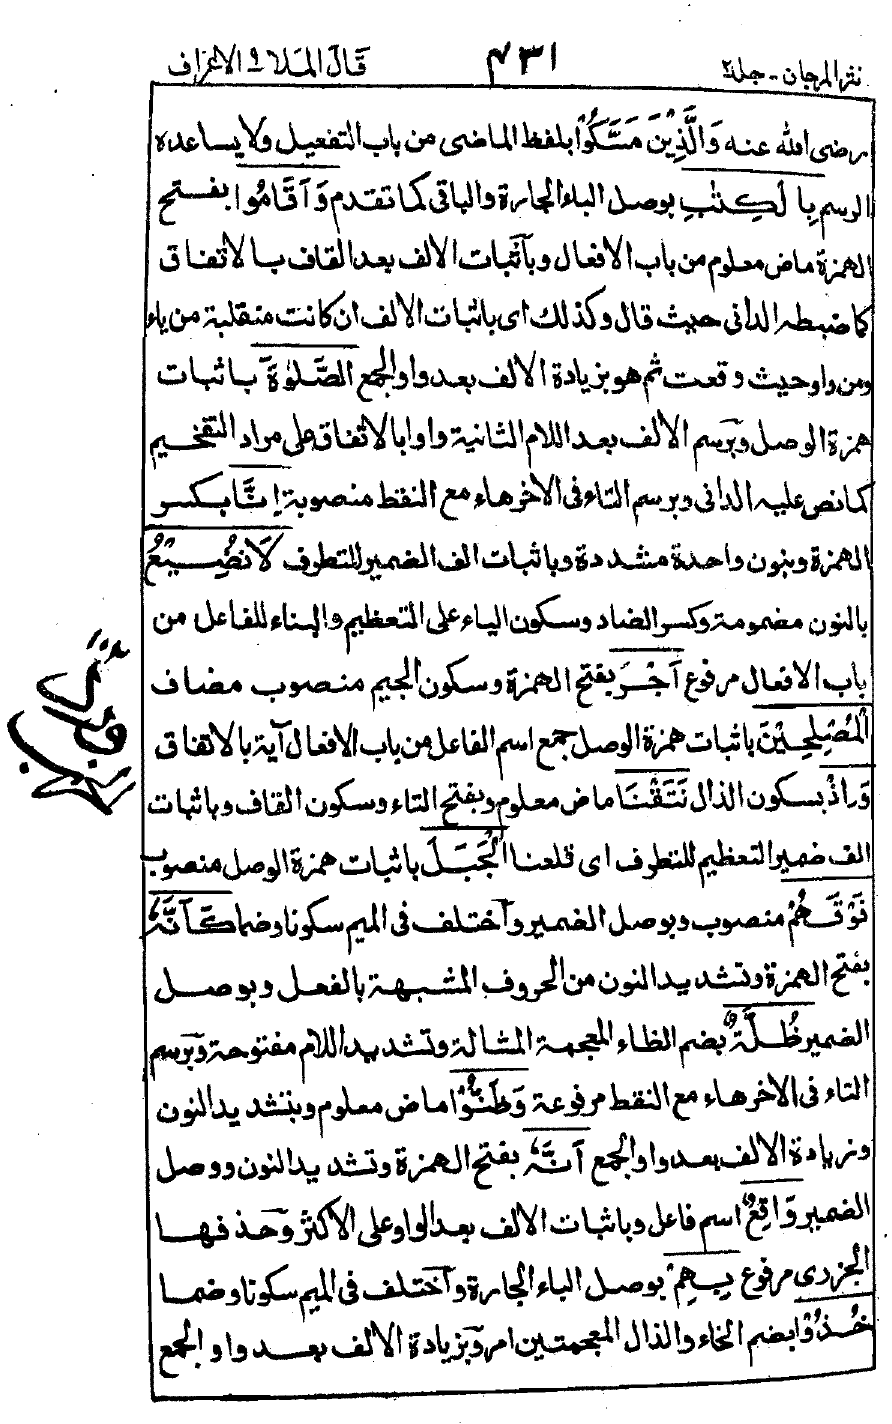 نثر المرجان - جلد ٢ ٤٣١ قال الملا ٩ الاعراف
رضى الله عنه وَالَّذِيْنَ مَسَّكُوْا بلفظ الماضى من باب التفعيل ولا يساعده
الرسم بِالْكِتٰبِ بوصل الباء الجارة والباقى كما تقدم وَاَقَامُوا بفتح
الهمزة ماض معلوم من باب الافعال وبآثبات الالف بعد القاف بالاتفاق
كما ضبطه الدانى حيث قال وكذلك اى باثبات الالف ان كانت منقلبة من ياء
ومن واو حيث وقعت ثم هو بزيادة الالف بعد واو الجمع الصَّلٰوةَ باثبات
همزة الوصل وبرسم الالف بعد اللام الثانية واوا بالاتفاق على مراد التفخيم
كما نص عليه الدانى وبرسم التاء فى الاخر هاء مع النقط منصوبة اِنَّا بكسر
الهمزة وبنون واحدة مشددة وباثبات الف الضمير للتطرف لَا نُضِيْعُ
بالنون مضمومة وكسر الضاد وسكون الياء على التعظيم والبناء للفاعل من
باب الافعال مرفوع اَجْرَ بفتح الهمزة وسكون الجيم منصوب مضاف
الْمُصْلِحِيْنَ باثبات همزة الوصل جمع اسم الفاعل من باب الافعال آية بالاتفاق
وَاِذْ بسكون الذال نَتَقْنَا ماض معلوم وبفتح التاء وسكون القاف وباثبات
الف ضمير التعظيم للتطرف اى قلعنا الْجَبَلَ باثبات همزة الوصل منصوب
فَوْقَهُمْ منصوب وبوصل الضمير وآختلف فى الميم سكونا وضما كَاَنَّهٗ
بفتح الهمزة وتشديد النون من الحروف المشبهة بالفعل وبوصل
الضمير ظُلَّةٌ بضم الظاء المعجمة المشالة وتشديد اللام مفتوحة وبرسم
التاء فى الاخر هاء مع النقط مرفوعة وَظَنُّوْا ماض معلوم وبتشديد النون
وزيادة الالف بعد واو الجمع اَنَّهٗ بفتح الهمزة وتشديد النون ووصل
الضمير وَاقِعٌ اسم فاعل وباثبات الالف بعد الواو على الاكثر وحذفها
الجزرى مرفوع بِهِمْ بوصل الباء الجارة وآختلف فى الميم سكونا وضما
خُذُوْا بضم الخاء والذال المعجمتين امر وبزيادة الالف بعد واو الجمع